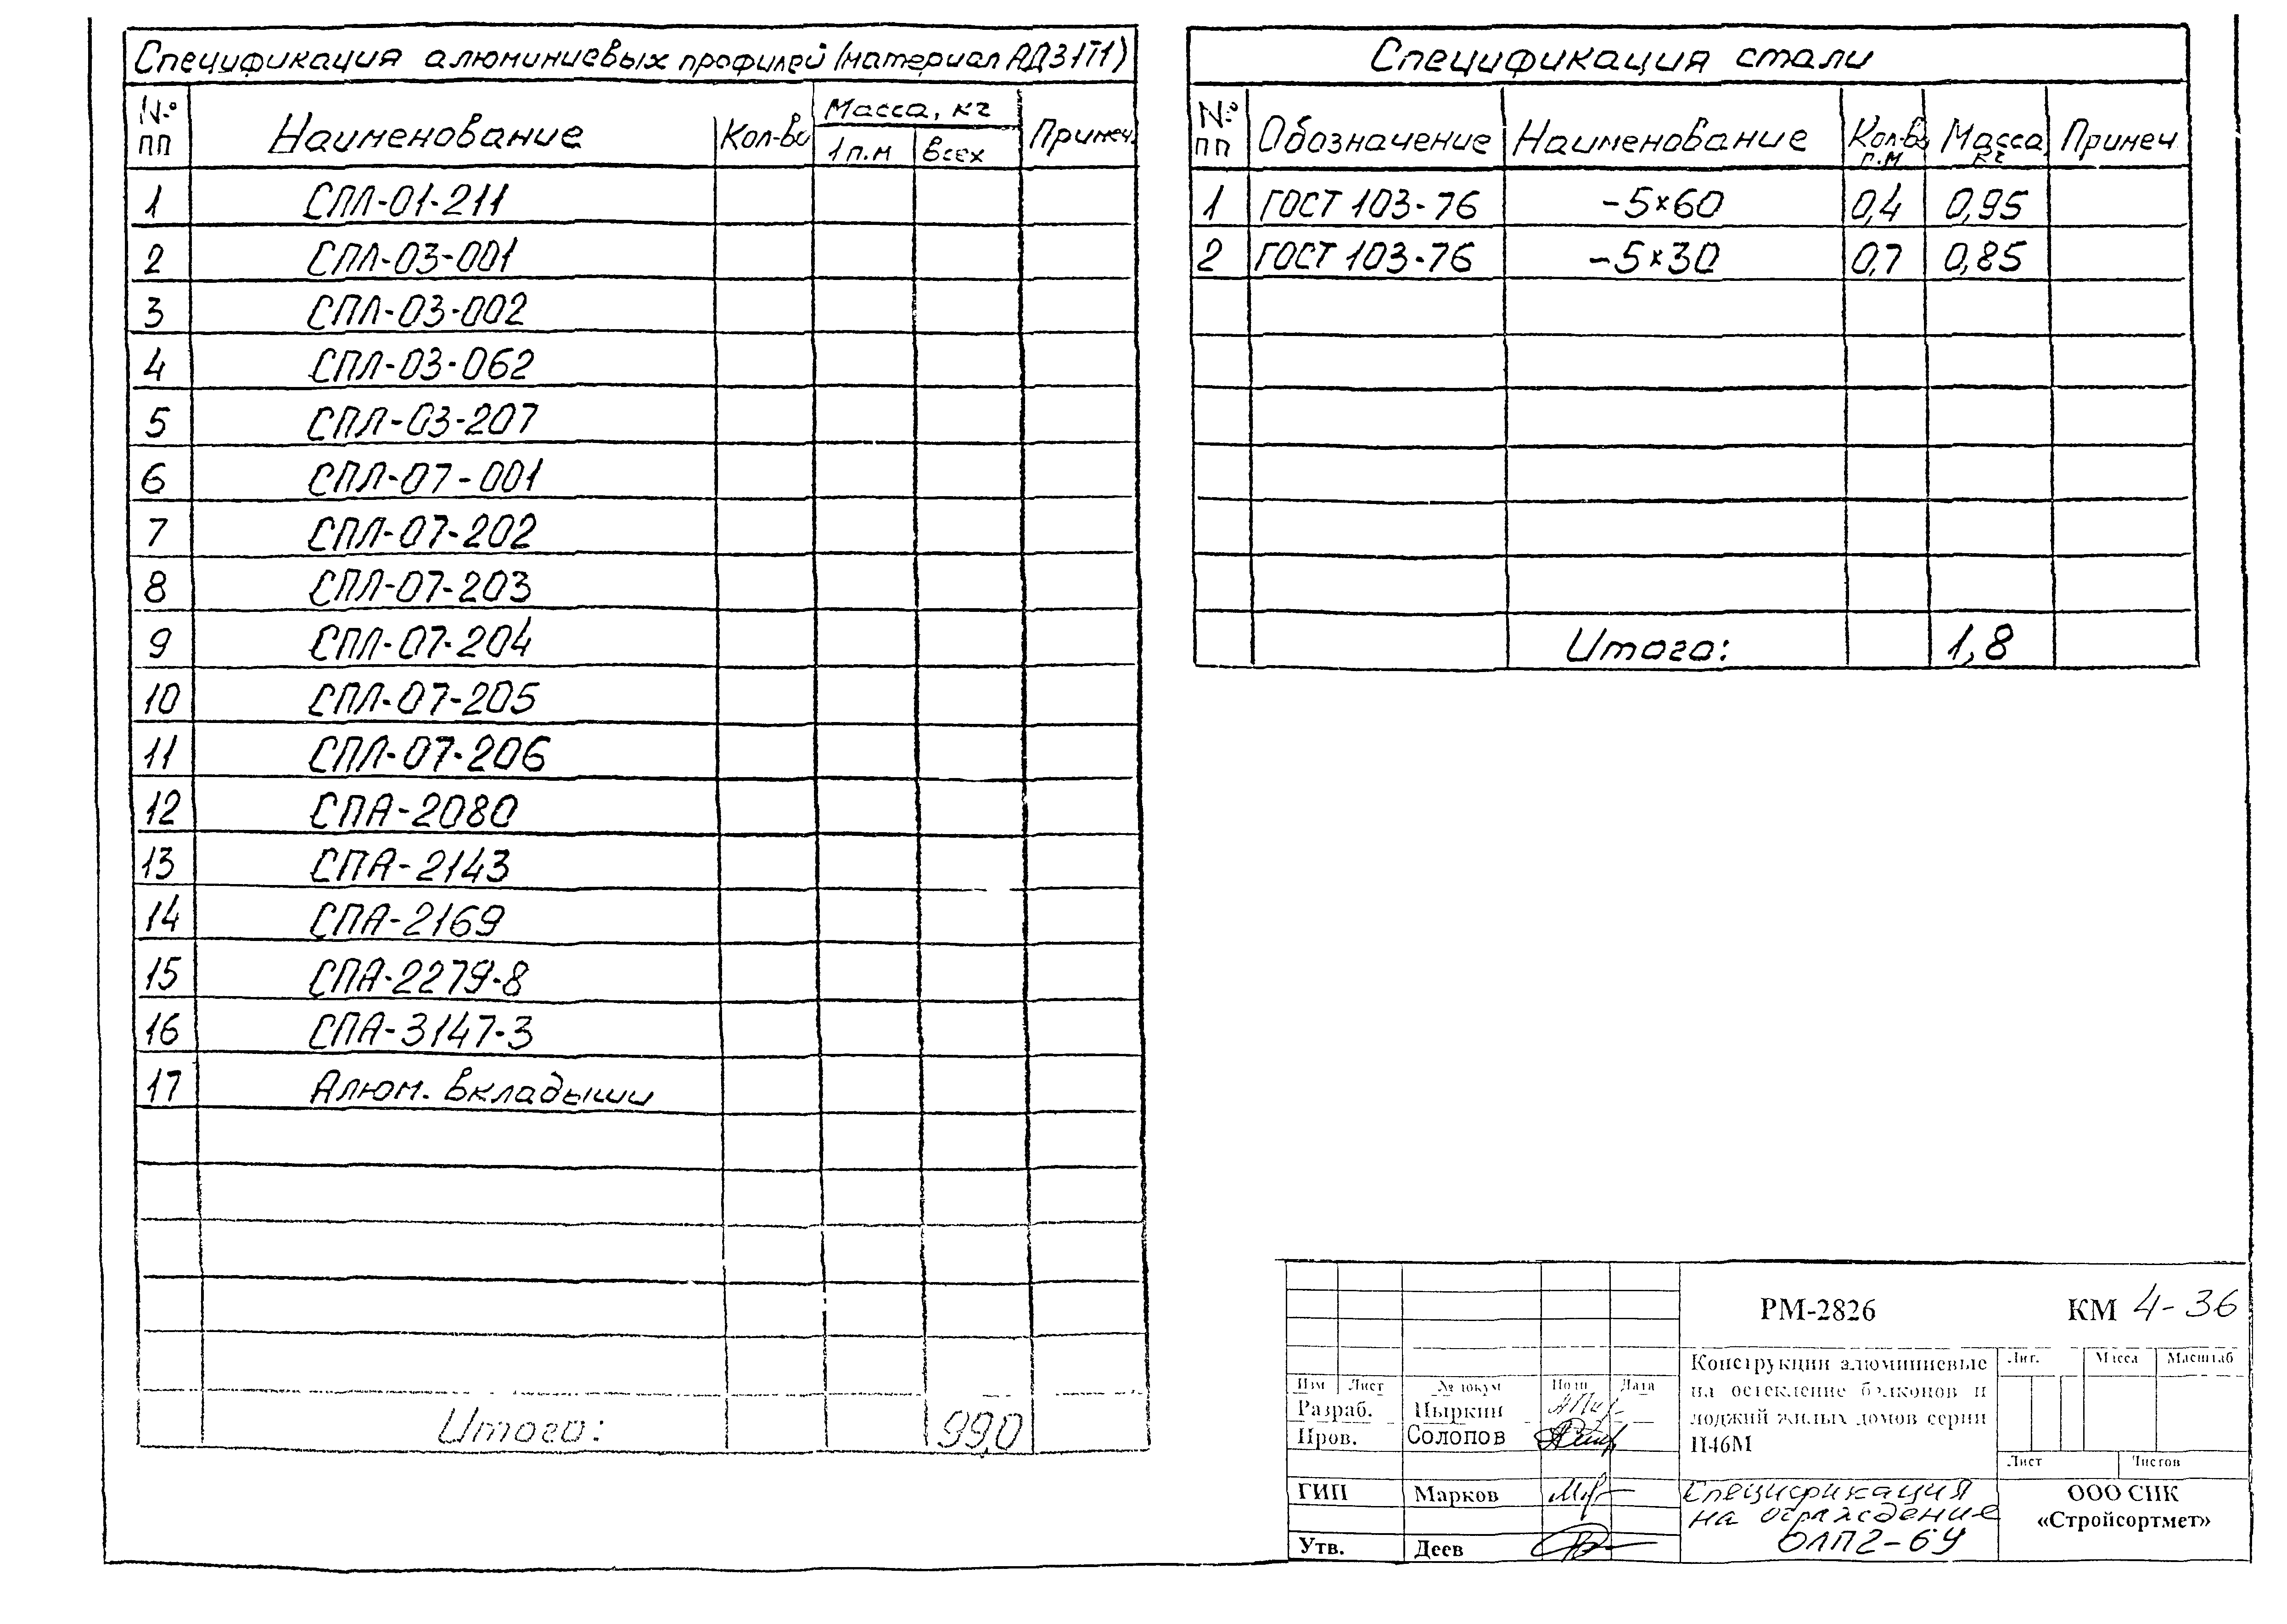 Спецификация алюминиевых профилей (материал АД31Т1)
№ пп Наименование Кол-во Масса, кг Примеч.
1 п.м всех
1 СПЛ-01-211
2 СПЛ-03-001
3 СПЛ-03-002
4 СПЛ-03-062
5 СПЛ-03-207
6 СПЛ-07-001
7 СПЛ-07-202
8 СПЛ-07-203
9 СПЛ-07-204
10 СПЛ-07-205
11 СПЛ-07-206
12 СПА-2080
13 СПА-2143
14 СПА-2169
15 СПА-2279-8
16 СПА-3147-3
17 Алюм. вкладыши
Итого: 99,0
Спецификация стали
№ пп Обозначение Наименование Кол-во п.м Масса, кг Примеч.
1 ГОСТ 103-76 -5×60 0,4 0,95
2 ГОСТ 103-76 -5×30 0,7 0,85
Итого: 1,8
РМ-2826 КМ 4-36
Конструкции алюминиевые
на остекление балконов и
лоджий жилых домов серии
П46М
Лит. Масса Масштаб
Изм Лист № докум Подп Дата
Разраб. Цыркин
Пров. Солопов
Лист Листов
ГИП Марков
Утв. Деев
Спецификация
на ограждение
ОЛП2-6У
ООО СПК
«Стройсортмет»